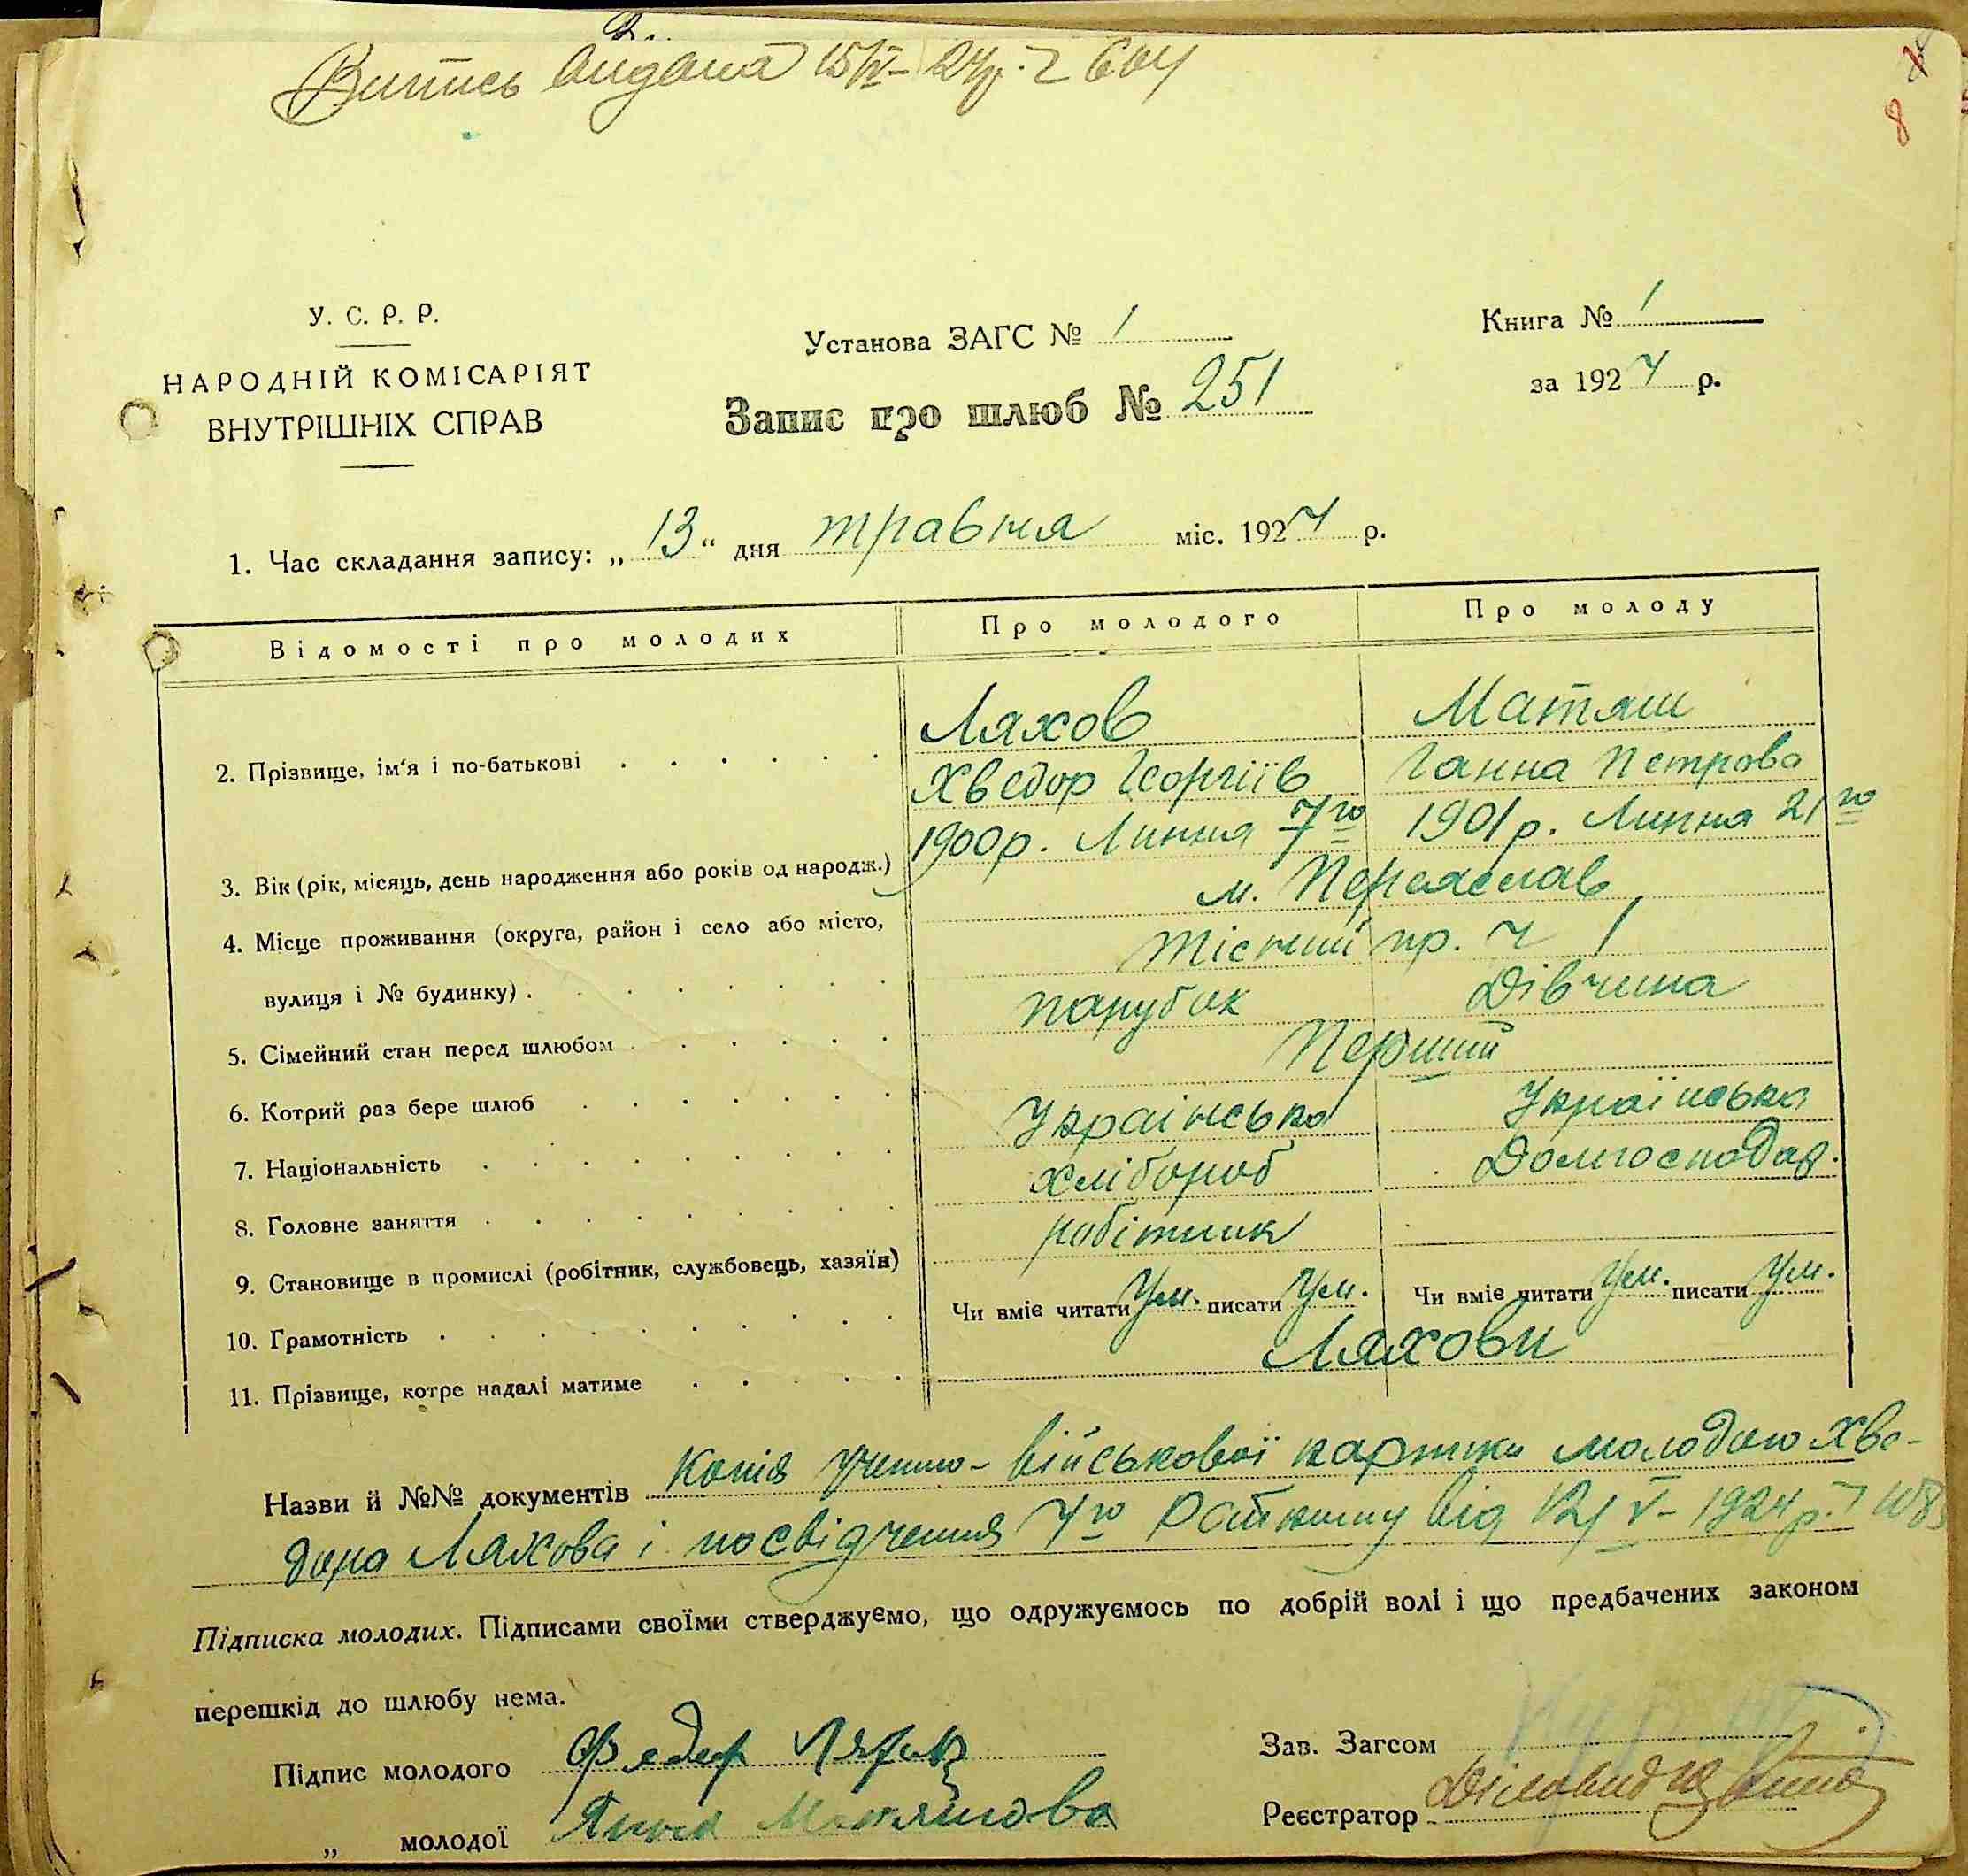 Випись видана 15/IV-24р. 604
8
У. С. Р. Р.
НАРОДНІЙ КОМІСАРІЯТ
ВНУТРІШНІХ СПРАВ
Установа ЗАГС № 1
Запис про шлюб № 251
Книга № 1
за 1924 р.
1. Час складання запису: „ 13 “ дня травня міс. 1924 р.
Відомості про молодих Про молодого Про молоду
Ляхов Маташ
2. Прізвище, ім'я і по-батькові Хведор Георгіїв Ганна Петрова
3. Вік (рік, місяць, день народження або років од народж.) 1900р. Липня 7го 1901р. Липня 21го
4. Місце проживання (округа, район і село або місто, м. Переяслав
вулиця і № будинку) Місчий пр. ч 1
5. Сімейний стан перед шлюбом парубок Дівчина
6. Котрий раз бере шлюб Перший
7. Національність Українська Українська
8. Головне заняття хлібороб Домгосподар.
9. Становище в промислі (робітник, службовець, хазяїн) робітник
10. Грамотність Чи вміє читати Ум. писати Ум. Чи вміє читати Ум. писати Ум.
11. Прізвище, котре надалі матиме Ляхови
Назви й №№ документів Копія військової картки молодого Хве-
дора Ляхова і посвідчення від 12/V-1924р.
Підписка молодих. Підписами своїми стверджуємо, що одружуємось по добрій волі і що предбачених законом
перешкід до шлюбу нема.
Підпис молодого Федор Ляхов
„ молодої Анна Маташова
Зав. Загсом
Реєстратор